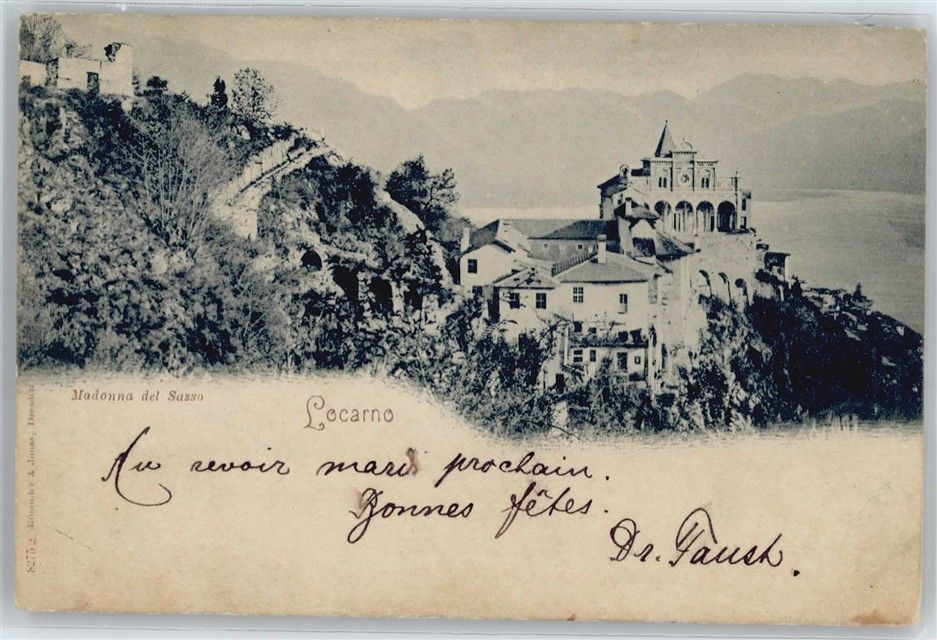 Madonna del Sasso
Locarno
Au revoir mardi prochain.
Bonnes fêtes.
Dr. Faush.
8275 g Römmler & Jonas, Dresden